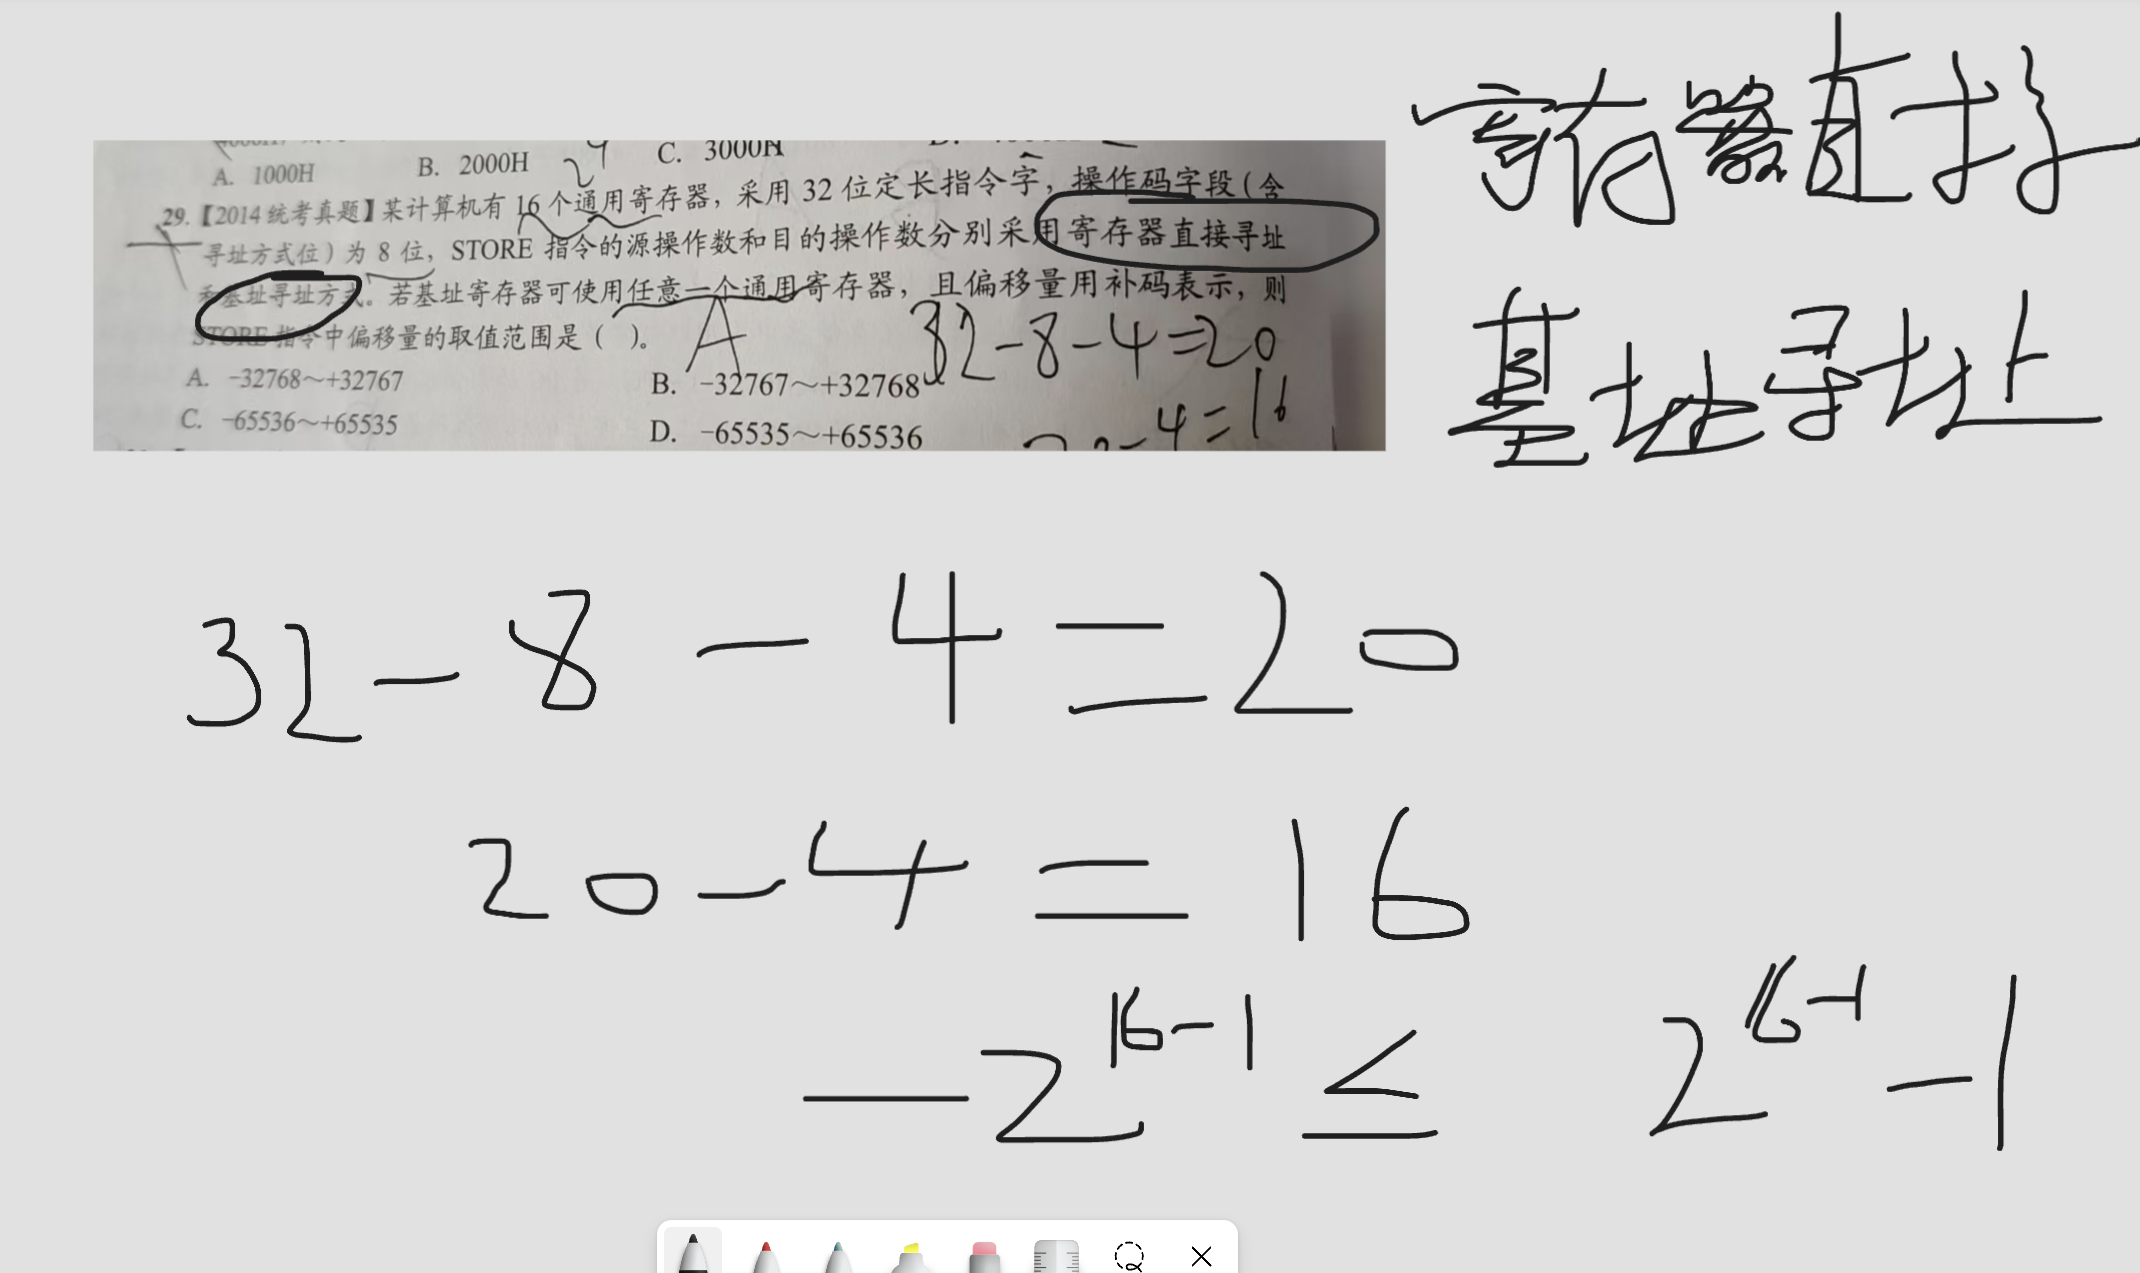 A. 1000H B. 2000H 24 C. 3000H
29.【2014统考真题】某计算机有16个通用寄存器，采用32位定长指令字，操作码字段（含
寻址方式位）为8位，STORE指令的源操作数和目的操作数分别采用寄存器直接寻址
和基址寻址方式。若基址寄存器可使用任意一个通用寄存器，且偏移量用补码表示，则
STORE指令中偏移量的取值范围是（ ）。 A 32-8-4=20
A. -32768～+32767 B. -32767～+32768
C. -65536～+65535 D. -65535～+65536 -4=16
寄存器直接
基址寻址
32-8-4=20
20-4=16
-2^16-1 ≤ 2^16-1 -1